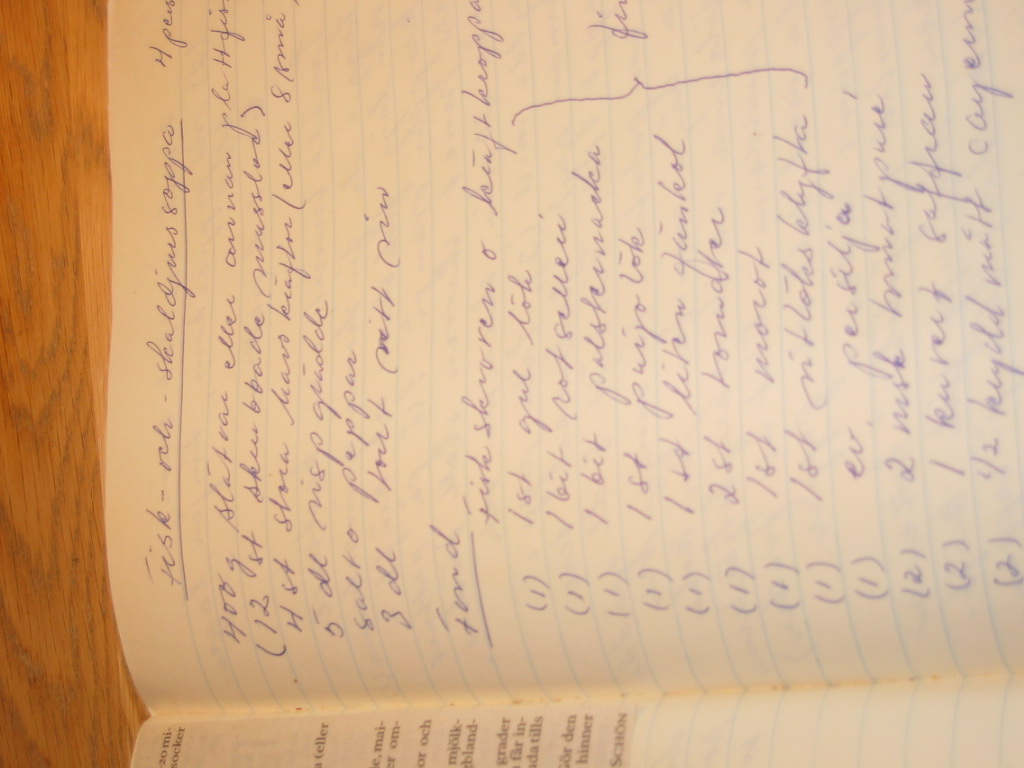 fisk- och -skaldjurssoppa 4 pers
400 g slätvar eller annan plattfis
(12 st skrubbade musslor)
4 st stora havskräftor (eller 8 små
5 dl vispgrädde
salt o peppar
3 dl torrt vitt vin
Fond
Fiskskroven o kräftkroppa
(1) 1st gul lök
(1) 1 bit rotselleri
(1) 1 bit palsternacka
(1) 1 st purjolök
(1) 1 st liten fänkol
(1) 2 st tomater
(1) 1st morot
(1) 1st vitlöksklyfta
(1) ev. persilja
fin
(2) 2 msk tomatpuré
(2) 1 kuvert saffran
(2) 1/2 kryddmått cayenn
-20 mi-
socker
a (eller
e, mai-
r om-
or och
mjölk-
gbland-
grader
n får in-
nda tills
Gör den
hinner
SCHÖN